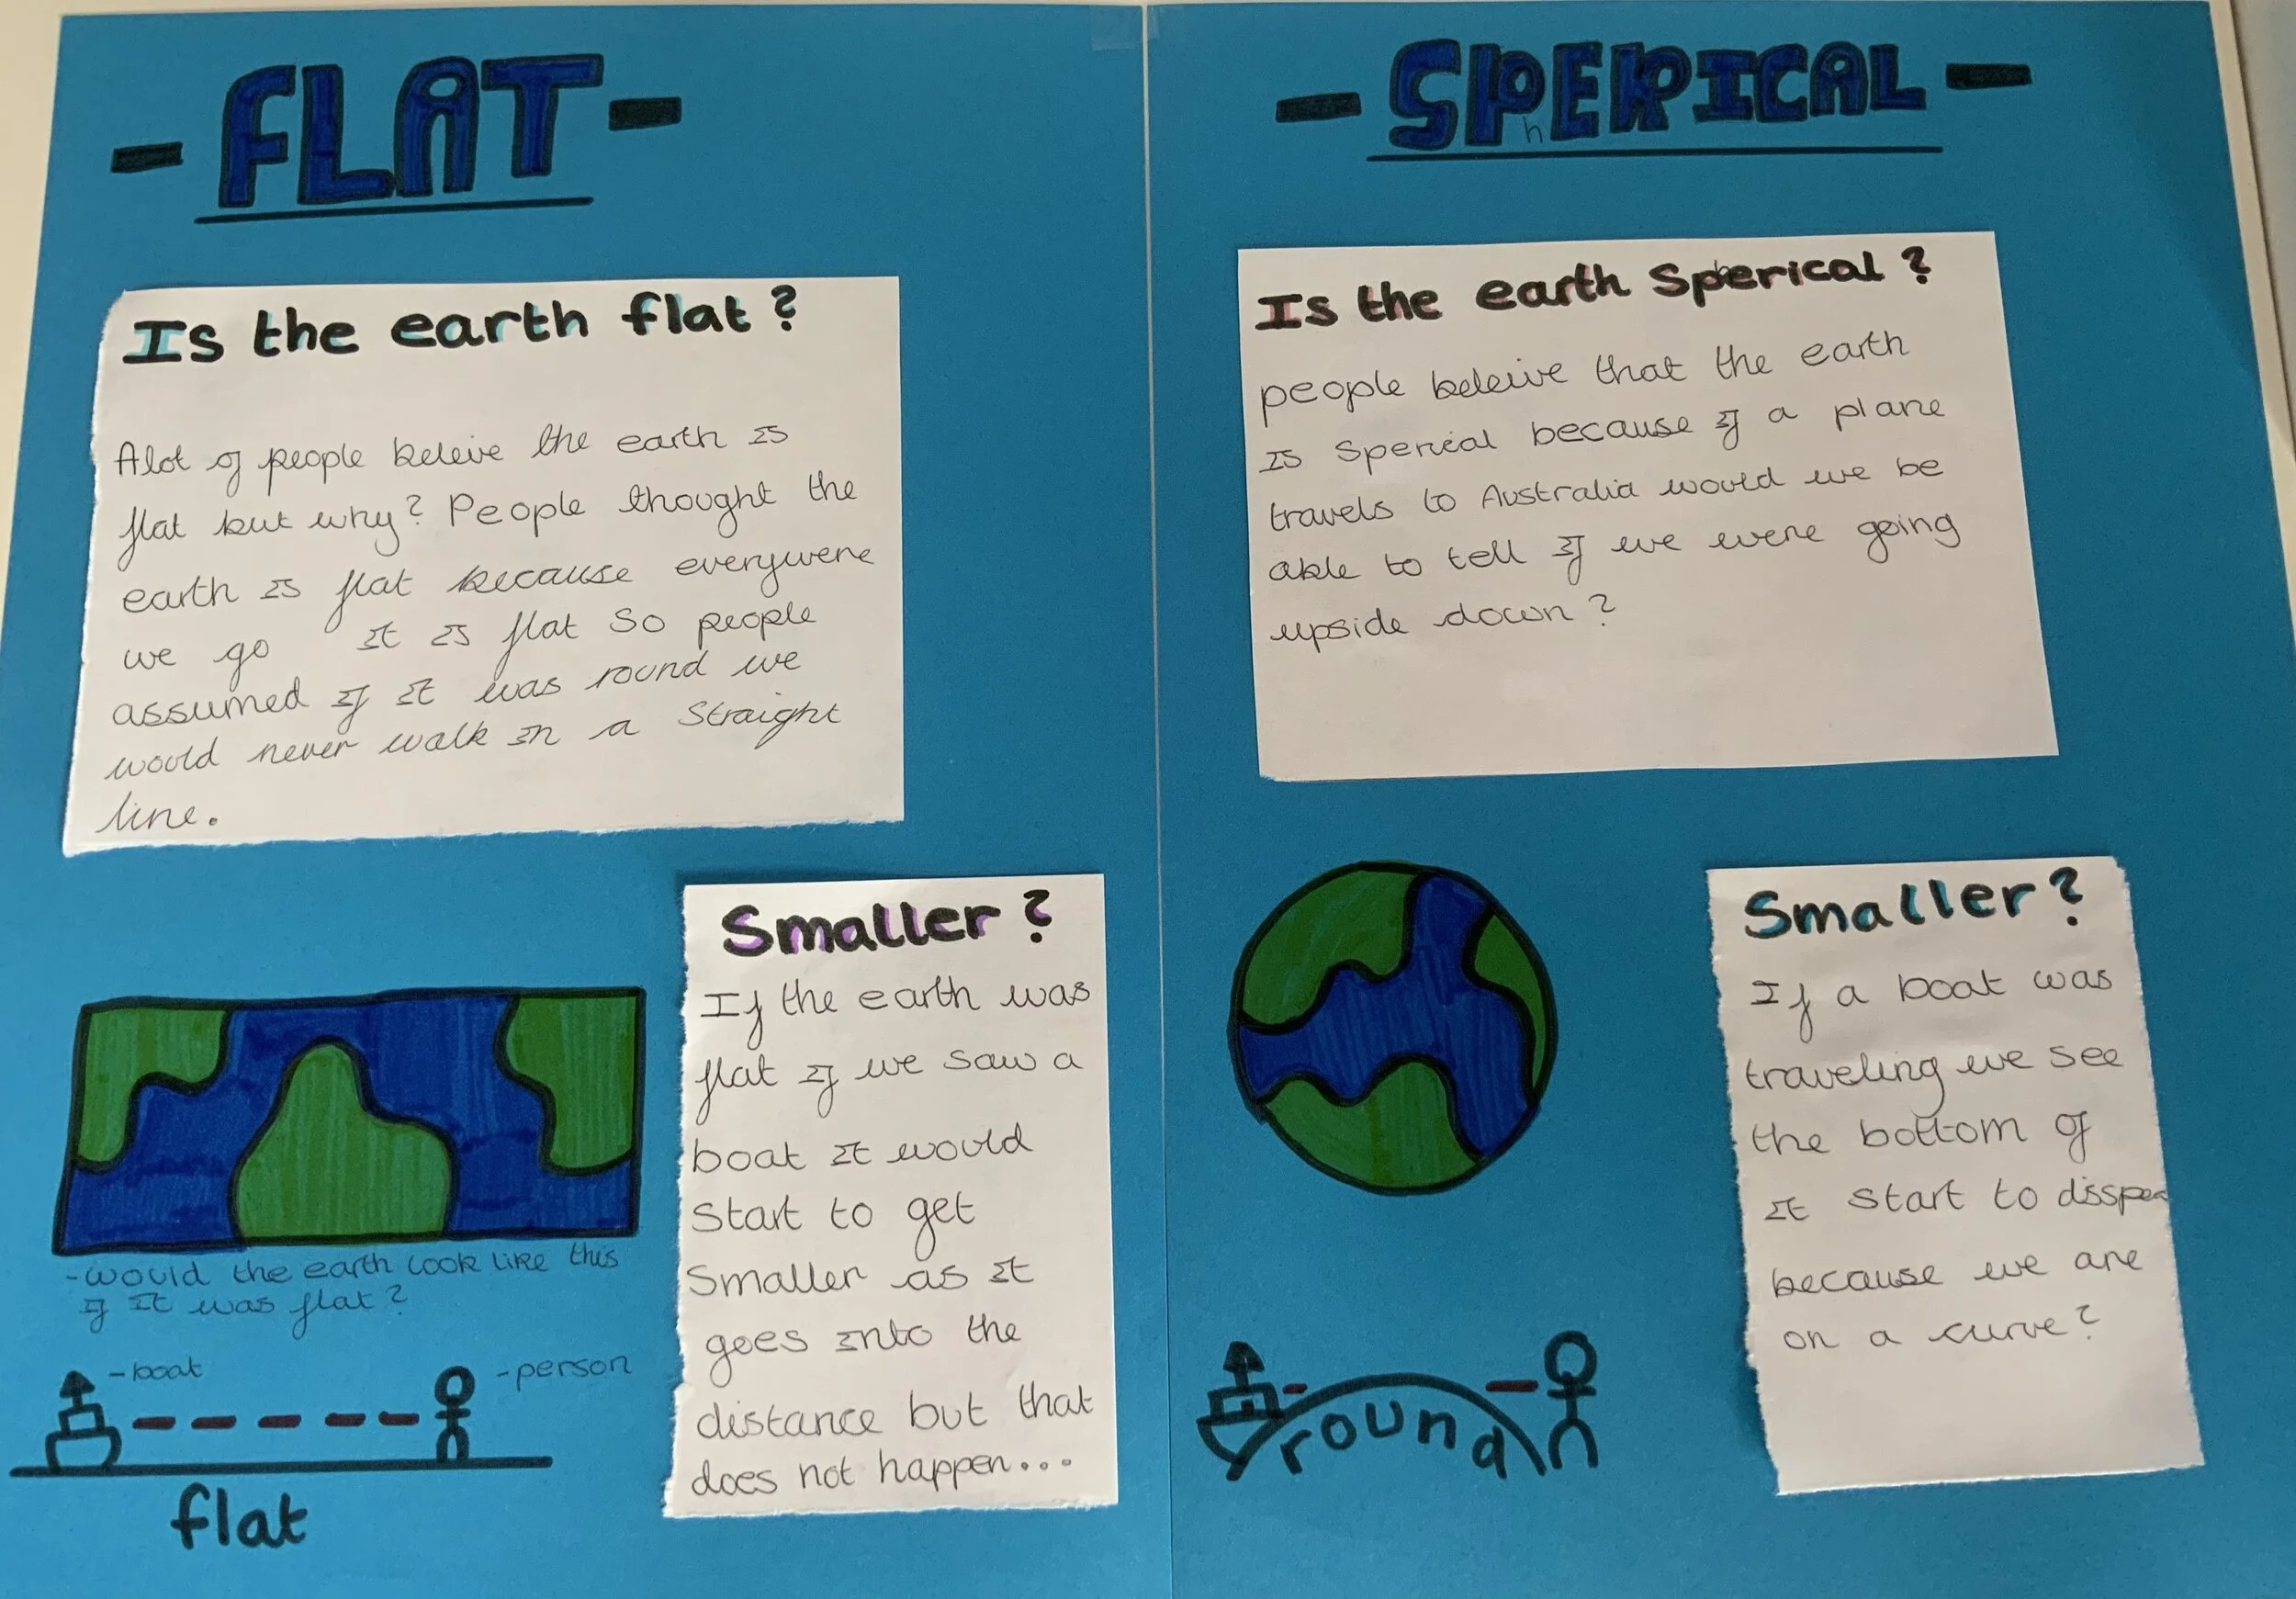 - FLAT -
Is the earth flat?
Alot of people beleive the earth is
flat but why? People thought the
earth is flat because everywere
we go it is flat So people
assumed if it was round we
would never walk in a Straight
line.
Smaller?
If the earth was
flat if we saw a
boat it would
Start to get
Smaller as it
goes into the
distance but that
does not happen...
-would the earth look like this
if it was flat?
-boat
-person
flat
- SPhERICAL -
Is the earth Spherical?
people beleive that the earth
is Sperical because if a plane
travels to Australia would we be
able to tell if we were going
upside down?
Smaller?
If a boat was
traveling we see
the bottom of
it start to disspea
because we are
on a curve?
round